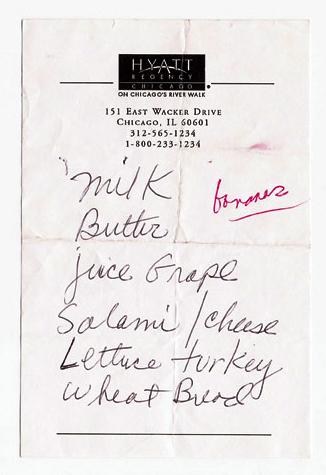 HYATT
REGENCY
CHICAGO
ON CHICAGO'S RIVER WALK
151 EAST WACKER DRIVE
CHICAGO, IL 60601
312-565-1234
1-800-233-1234
milk
bananas
Butter
juice Grape
Salami / cheese
Lettuce turkey
wheat Bread